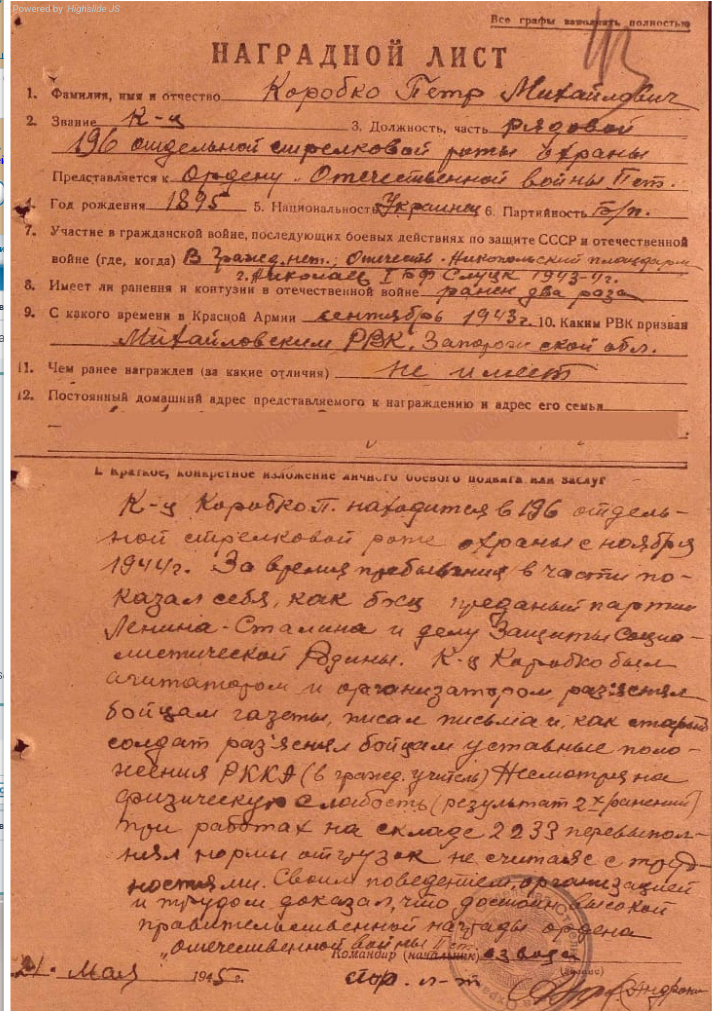 Powered by Highslide JS
Все графы заполнять полностью
НАГРАДНОЙ ЛИСТ
1. Фамилия, имя и отчество Коробко Пётр Михайлович
2. Звание К-ц 3. Должность, часть рядовой
196 отдельной стрелковой роты охраны
Представляется к Ордену „Отечественной войны II ст.
4. Год рождения 1895 5. Национальность Украинец 6. Партийность б/п.
7. Участие в гражданской войне, последующих боевых действиях по защите СССР и отечественной
войне (где, когда) В Гражд. нет.; Отечеств. Никопольский плацдарм
г. Николаев I БФ Слуцк 1943-4г.
8. Имеет ли ранения и контузии в отечественной войне ранен два раза
9. С какого времени в Красной Армии сентябрь 1943г. 10. Каким РВК призван
Михайловским РВК, Запорожской обл.
11. Чем ранее награжден (за какие отличия) не имеет
12. Постоянный домашний адрес представляемого к награждению и адрес его семьи
I. Краткое, конкретное изложение личного боевого подвига или заслуг
К-ц Коробко П. находится в 196 отдель-
ной стрелковой роте охраны с ноября
1944г. За время пребывания в части по-
казал себя, как б-ец преданый партии
Ленина-Сталина и делу Защиты Социа-
листической Родины. К-ц Коробко был
агитатором и организатором, раз'яснял
бойцам газеты, писал письма и, как старый
солдат раз'яснял бойцам уставные поло-
жения РККА (в гражд. учитель) Несмотря на
физическую слабость (результат 2х ранений)
при работах на складе 2233 перевыпол-
нял нормы отгрузок не считаясь с труд-
ностями. Своим поведением, организацией
и трудом доказал, что достоин высокой
правительственной награды ордена
„отечественной войны II ст."
Командир (начальник) взвода
21. Мая 1945 г. стар. л-т